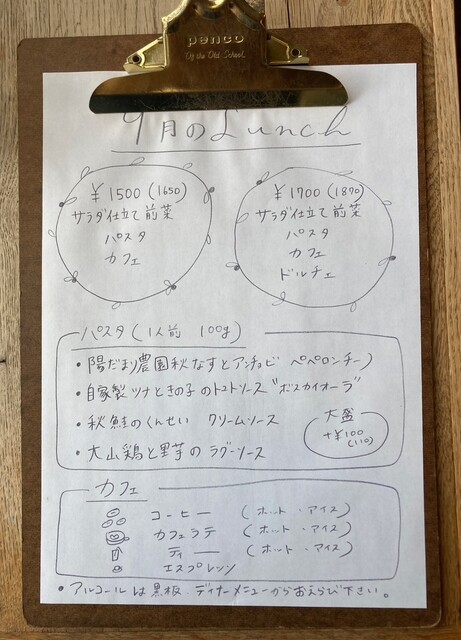 penco
Of the "Old School"
9月のLunch
¥1500(1650)
サラダ仕立て前菜
パスタ
カフェ
¥1700(1870)
サラダ仕立て前菜
パスタ
カフェ
ドルチェ
パスタ(1人前 100g)
・陽だまり農園秋なすとアンチョビ ペペロンチーノ
・自家製ツナときの子のトマトソース"ボスカイオーラ"
・秋鮭のくんせい クリームソース
・大山鶏と里芋のラグーソース
大盛
+¥100
(110)
カフェ
コーヒー (ホット・アイス)
カフェラテ (ホット・アイス)
ティー (ホット・アイス)
エスプレッソ
・アルコールは黒板・ディナーメニューからおえらび下さい。